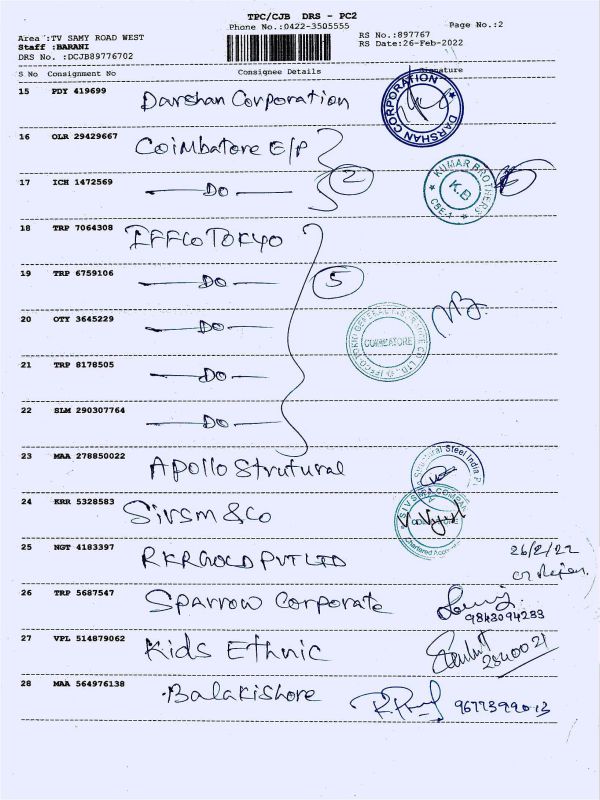 TPC/CJB DRS - PC2
Phone No.:0422-3505555
Page No.:2
Area :TV SAMY ROAD WEST
RS No.:897767
Staff :BARANI
RS Date:26-Feb-2022
DRS No. :DCJB89776702
S No Consignment No Consignee Details Signature
15 PDY 419699 Darshan Corporation
DARSHAN CORPORATION
16 OLR 29429667 Coimbatore E/P
17 ICH 1472569 — Do — 2
KUMAR BROTHERS
K.B
CBE-1
18 TRP 7064308 IFFCO TOKYO
19 TRP 6759106 — Do — 5
20 OTY 3645229 — Do —
COIMBATORE
21 TRP 8178505 — Do —
22 SLM 290307764 — Do —
23 MAA 278850022 Apollo Strutural
Structural Steel India P.
24 KRR 5328583 Sivsm & Co
25 NGT 4183397 RKRGOLD PVT LTD 26/2/22
26 TRP 5687547 Sparrow Corporate
9843094283
27 VPL 514879062 Kids Ethnic
2840021
28 MAA 564976138 Balakishore